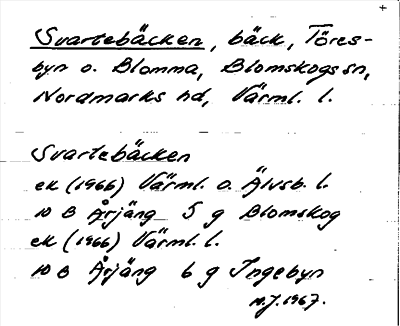 Svartebäcken, bäck, Töres-
byn o. Blomma, Blomskogs sn,
Nordmarks hd, Värml. l.
Svartebäcken
ek (1966) Värml. o. Älvsb. l.
10 B Årjäng 5 g Blomskog
ek (1966) Värml. l.
10 B Årjäng 6 g Ingebyn
M.J. 1967.